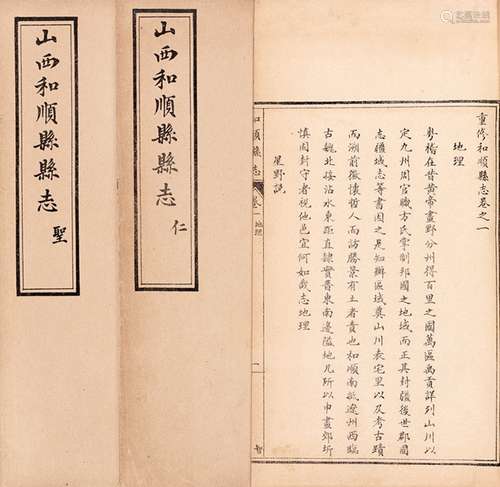 山西和順縣縣志
聖
山西和順縣縣志
仁
重修和順縣志卷之一
地理
粵稽在昔黃帝畫野分州得百里之國萬區禹貢詳列山川以
定九州周官職方氏掌制邦國之地域而正其封疆後世郡國
志疆域志等書因之是知辦區域奠山川表宅里以及考古蹟
而溯前徽懷哲人而訪勝景有土者責也和順南抵遼州西臨
古魏北接沾水東距直隸實晉東南邊隘地凡所以申畫郊圻
慎固封守者視他邑宜何如哉志地理
星野說
和順縣志
卷一 地理
一